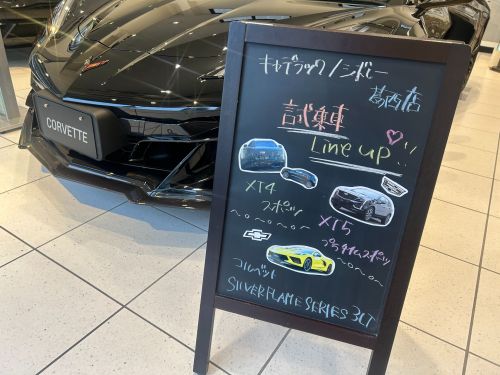 CORVETTE
キャデラック/シボレー
葛西店
試乗車
Line up!!
XT4
スポーツ
XT5
プラチナムスポーツ
コルベット
SILVERFLAME SERIES 3LT